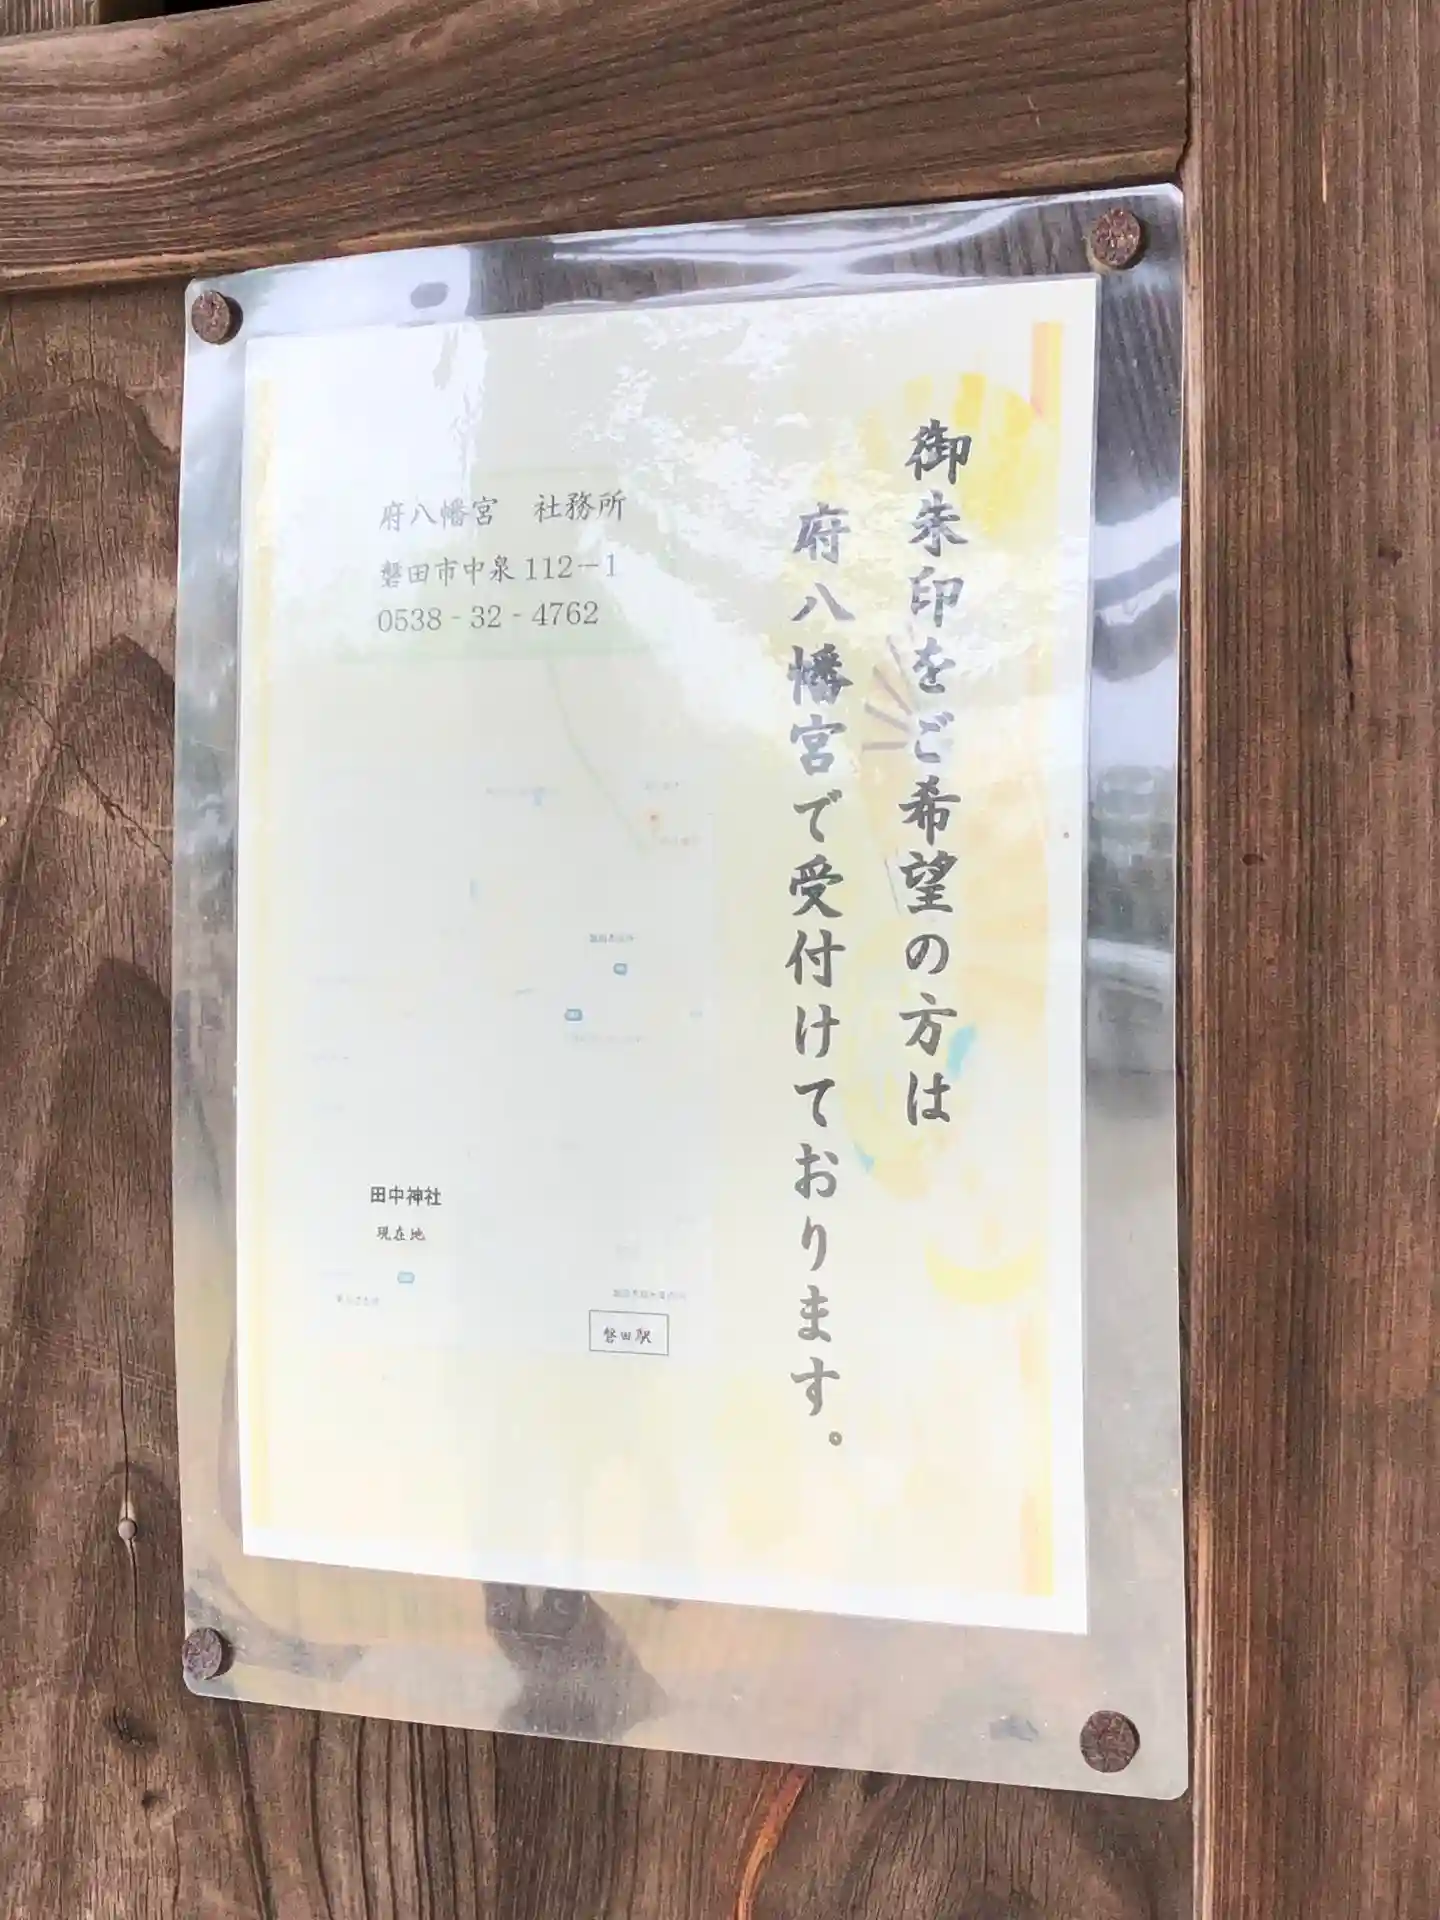 御朱印をご希望の方は
府八幡宮で受付けております。
府八幡宮　社務所
磐田市中泉112－1
0538 - 32 - 4762
田中神社
現在地
磐田駅